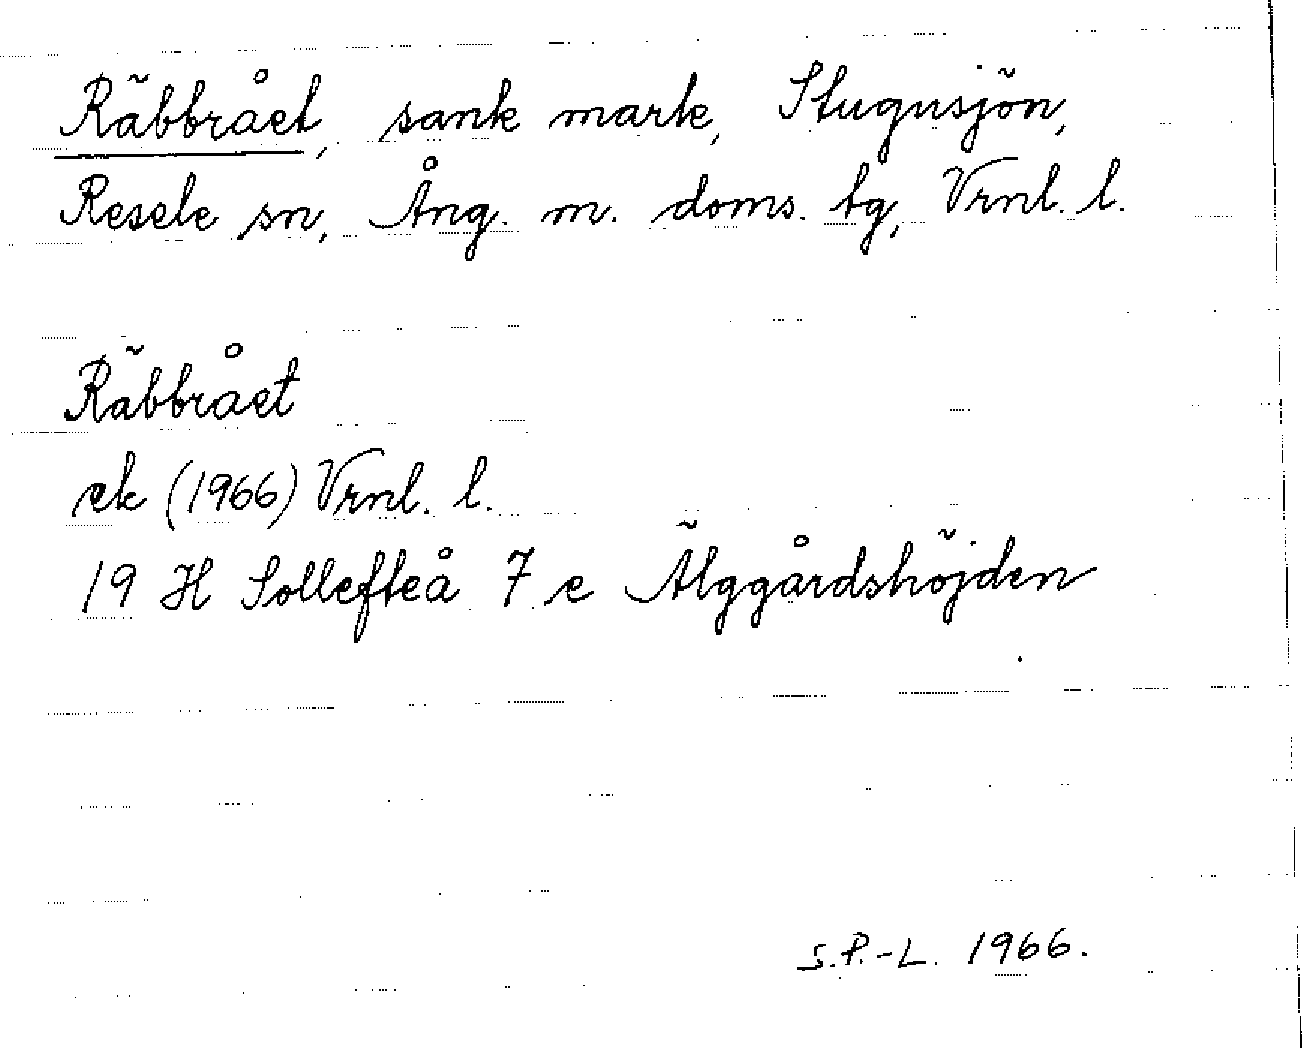 Räbbrået, sank mark, Stugusjön,
Resele sn, Ång. m. doms. tg, Vrnl. l.
Räbbrået
ek (1966) Vrnl. l.
19 H Sollefteå 7 e Älggårdshöjden
S.P.-L. 1966.